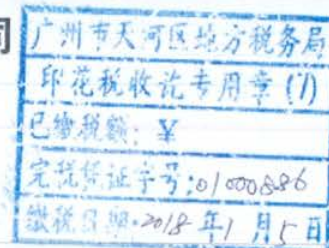 司
广州市天河区地方税务局
印花税收讫专用章(1)
已缴税额:¥
完税凭证字号:01000886
缴税日期:2018年1月5日